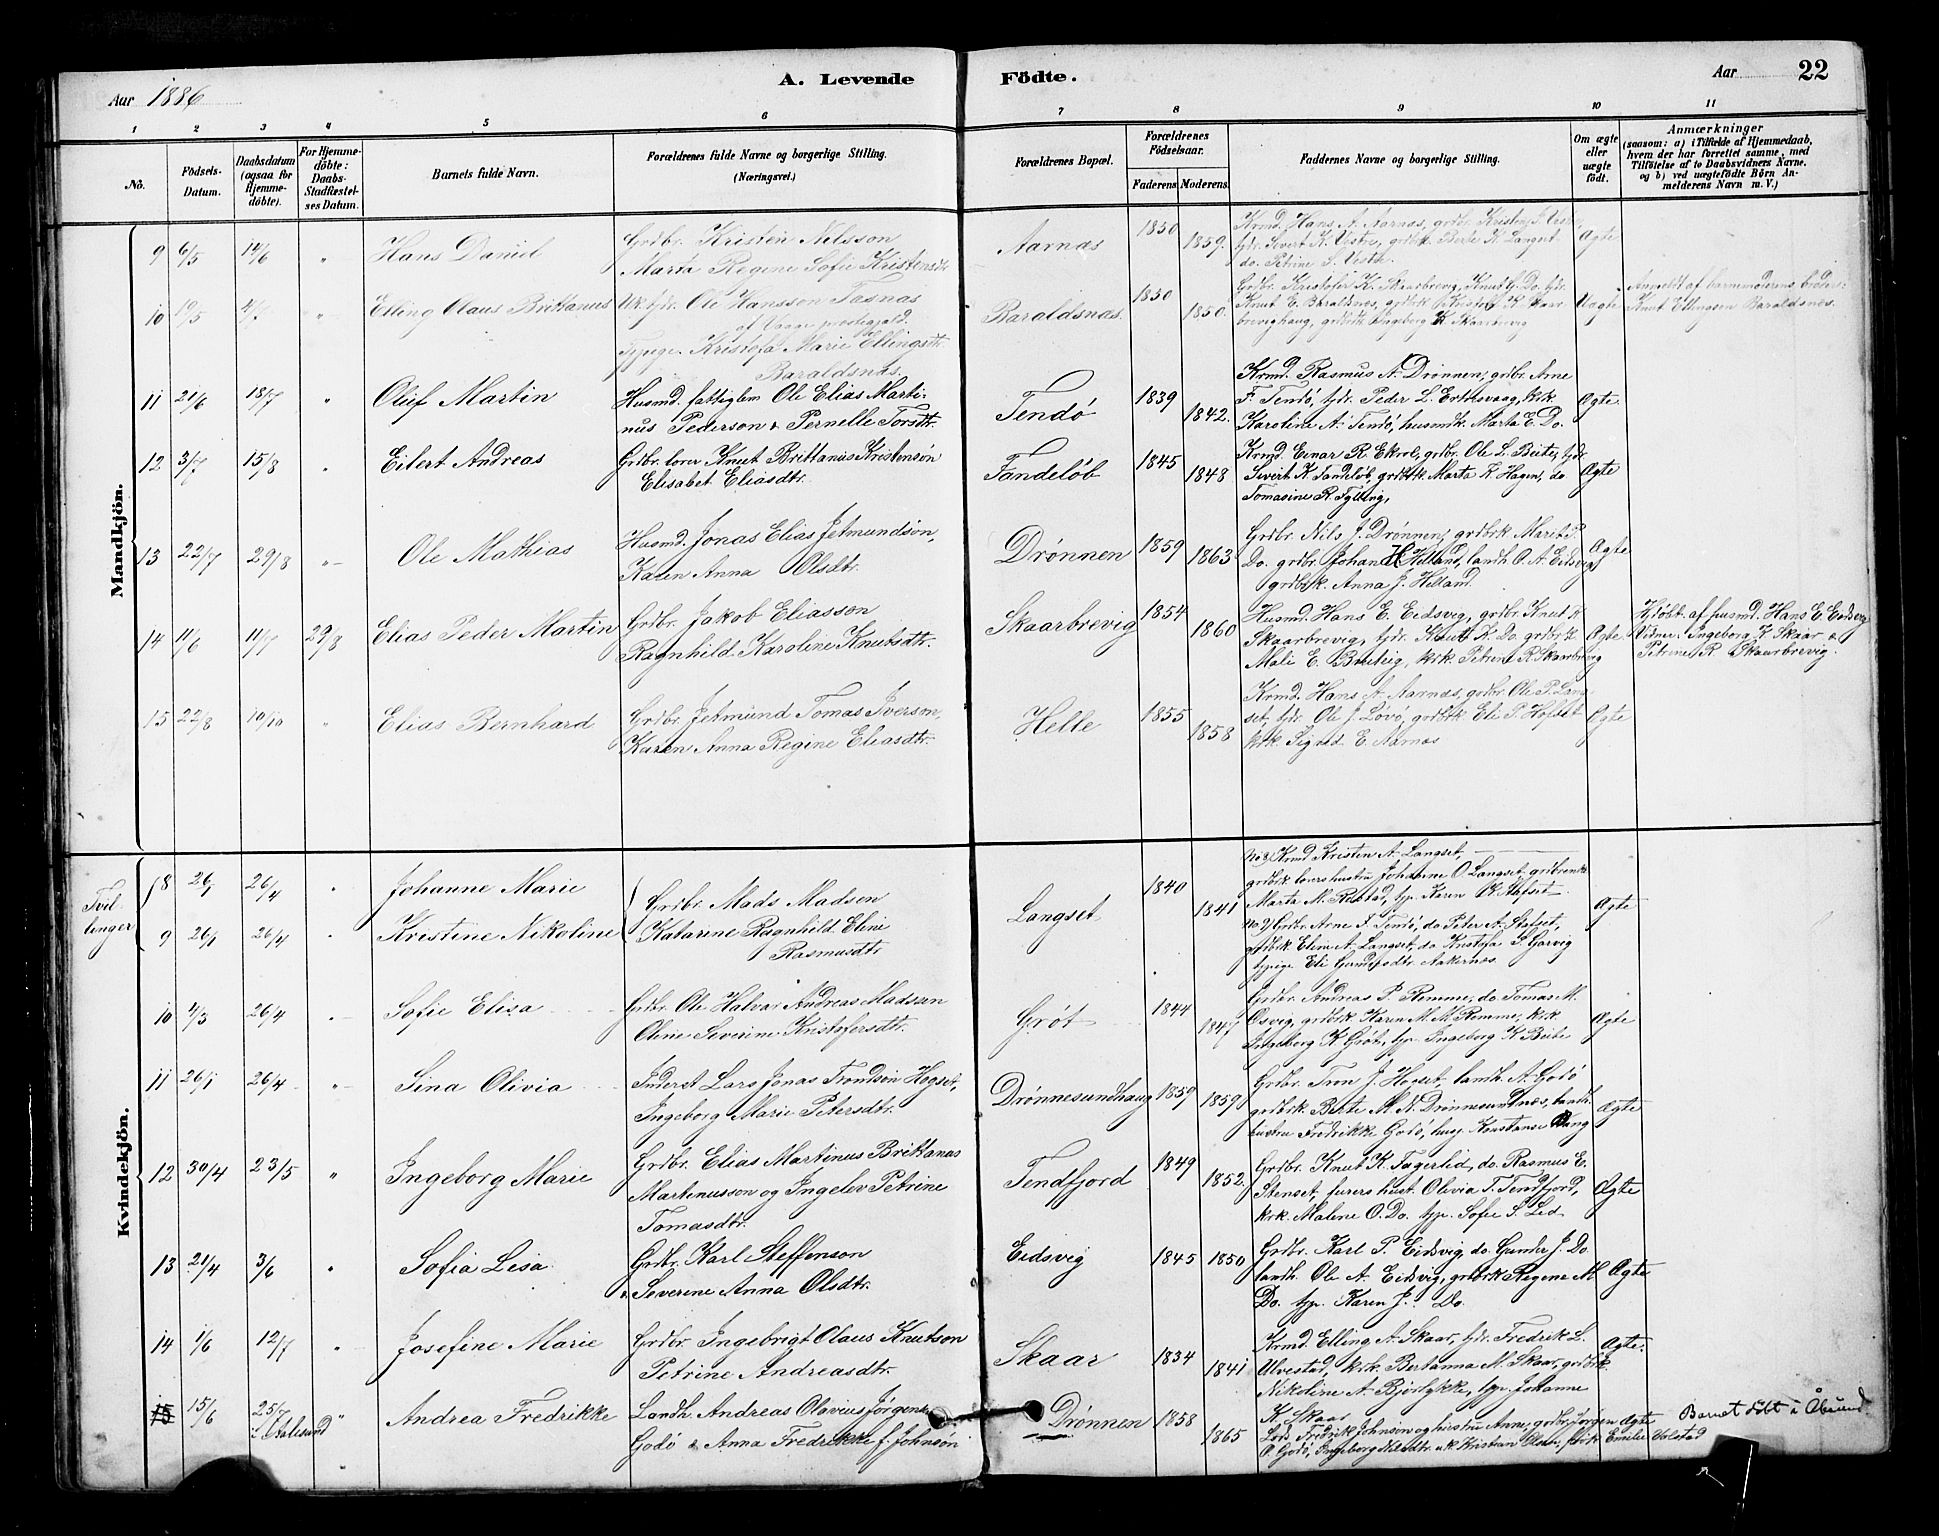 Aar 1886
A. Levende Födte.
Aar 22
1 2 3 4 5 6 7 8 9 10 11
No.
Födsels-Datum.
Daabsdatum (ogsaa for Hjemme-döbte).
For Hjemme-döbte: Daabs-Stadfæstel-ses Datum.
Barnets fulde Navn.
Forældrenes fulde Navne og borgerlige Stilling. (Næringsvei.)
Forældrenes Bopæl.
Forældrenes Födselsaar.
Faderens. Moderens.
Faddernes Navne og borgerlige Stilling.
Om ægte eller uægte födt.
Anmærkninger
(saasom: a) i Tilfælde af Hjemmedaab,
hvem der har forrettet samme, med
Tilföielse af to Daabsvidners Navne.
og b) ved uægtefödte Börn An-
melderens Navn m. V.)
Mandkjön.
9 6/5 14/6 " Hans Daniel
Grdbr. Kristen Nilsson
Marta Regine Sofie Kristensdtr
Aarnæs 1850 1859.
Krmd. Hans A. Aarnæs, grdbr. Kristen S. Vestre,
tjdr. Sivert K. Vestre, grdbrk. Berte K. Langset
do. Petrine S. Vestre
Ægte
10 19/5 4/7 " Elling Olaus Brittanus
Uk. tjdr. Ole Hansson Tasnæs
af Vaage prestegjæld.
Tjpige. Kristofa Marie Ellingsdtr.
Baraldsnæs.
Baraldsnæs. 1850 1850.
Grdbr. Kristofer K. Skaarbrevig, Knut G. Do. tjdr.
Knut E. Baraldsnæs, grdbrk Kristofa K. Skaar
brevighaug, grdbrdtr Ingeborg K. Skaarbrevig
Uægte
Anmeldt af barnmoderens broder:
Knut Ellingsen Baraldsnæs.
11 21/6 18/7 " Oluf Martin
Husmd. fattiglem Ole Elias Marti-
nus Pederson & Pernelle Torsdtr.
Tendö 1839 1842.
Krmd. Rasmus A. Drønnen, grdbr. Arne
F. Tendö, tjdr. Peder L. Ertesvaag, krk.
Karoline A. Tendö, husmdk. Marta E. Do.
Ægte.
12 3/7 15/8 " Eilert Andreas
Grdbr. lærer Knut Brittanus Kristensön
Elisabet Eliasdtr.
Tandeløb 1845 1848
Krmd. Einar R. Ekrol, grdbr. Ole L. Beite, tjdr
Sivert K. Tandeløb, grdbrk. Marta K. Hagen, do
Tomasine R. Tylling,
Ægte
13 22/7 29/8 " Ole Mathias
Husmd. Jonas Elias Jetmundsön,
Karen Anna Olsdtr.
Drønnen 1859 1863
Grdbr. Nils J. Drønnen, grdbrk Marit P.
Do. grdbr. Johan H. Helland, landh. O. A. Eidsvig,
grdbrk. Anna J. Helland.
Ægte
14 11/6 11/7 29/8 Elias Peder Martin
Grdbr. Jakob Eliasson
Ragnhild Karoline Knutsdtr.
Skaarbrevig 1854 1860
Husmd. Hans E. Eidsvig, grdbr. Knut K.
Skaarbrevig, tjdr. Knut K. Do. grdbrk
Mali E. Brutig, krk. Petrine R. Skaarbrevig
Ægte
Hjdöbt. af husmd. Hans E. Eidsvig
Vidner: Ingeborg K. Skaar &
Petrine R. Skaarbrevig.
15 22/8 10/10 " Elias Bernhard
Grdbr. Jetmund Tomas Iverson,
Karen Anna Regine Eliasdtr.
Helle 1855 1858
Krmd. Hans A. Aarnæs, grdbr. Ole P. Lang
set, tjdr. Ole J. Løvö, grdbrk Eli P. Hofset
krk. Sigrid E. Aarnæs
Ægte
Kvindekjön.
Tvil-
linger
8 26/1 26/4 " Johanne Marie
9 26/1 26/4 " Kristine Nikoline
Grdbr. Mads Madsen
Katarine Ragnhild Elini
Rasmusdtr
Langset 1840 1841
No 8) Krmd Kristen A. Langset,
grdbrk. lærers hustru Johanne O. Langset
Marta M. Rebstad, tjp. Karen K.
No 9) Grdbr. Arne F. Tendö, do Peter A. Slatset,
grdbrk Elini A. Langset, do Kristofa S. Garvig
tjpige Eli Gundersdtr. Aakernæs
Ægte
10 4/3 26/4 " Sofie Elisa
Grdbr. Ole Halvar Andreas Madsen
Oline Severine Kristofersdtr.
Gröt 1844 1847
Grdbr. Andreas P. Remme, do. Tomas M.
Osvig, grdbrk. Karen M. M. Remme, krk.
Ingeborg K. Gröt, tjp. Ingeborg K. Beite
Ægte
11 26/1 26/4 " Sina Olivia
Inderst Lars Jonas Trondsön Hogset,
Ingeborg Marie Petersdtr.
Drønnesundhaug 1859 1859
Grdbr. Tron J. Hogset, landh. A. Godö
grdbrk. Berte M. N. Drönnesundnæs, landh.
hustru Fredrikke Godö, husj. Konstanse Vang
Ægte
12 30/4 23/5 " Ingeborg Marie
Grdbr. Elias Martinus Brittanus
Martinusson og Ingelev Petrine
Tomasdtr.
Tendfjord 1849 1852.
Grdbr. Knut K. Fagerlid, do. Rasmus E.
Stenset, furers hust. Olivia T. Tendfjord,
krk. Malene O. Do. tjp. Sofie S. Lid
Ægte
13 21/4 3/6 " Sofia Lisa
Grdbr. Karl Steffenson
& Severine Anna Olsdtr.
Eidsvig 1845 1850
Grdbr. Karl P. Eidsvig, do. Gunder J. Do
landh. Ole A. Eidsvig, grdbrk Regine M
Do. tjp. Karen J. Do.
Ægte
14 1/6 12/7 " Josefine Marie
Grdbr. Ingebrigt Olaus Knutson
Petrine Andreasdtr.
Skaar 1834 1841
Krmd. Elling A. Skaar, tjdr. Fredrik L.
Ulvestad, krk. Bertanna M. Skaar, grdbrk.
Nikoline A. Bjørlykke, tjp. Johanne
K. Skaar
Ægte.
15 15/6 25/7 i Aalesund " Andrea Fredrikke
Landh. Andreas Olavius Jörgens.
Godö & Anna Fredrikke f. Johnsön
Drönnen 1858 1865
Lods Fredrik Johnsön og hustru Anne, grdbr. Jörgen
O. Godö, Ingeborg Nilsdtr. uk Kristian Olsen, Emelie Volstad
Ægte
Barnet födt i Ålesund